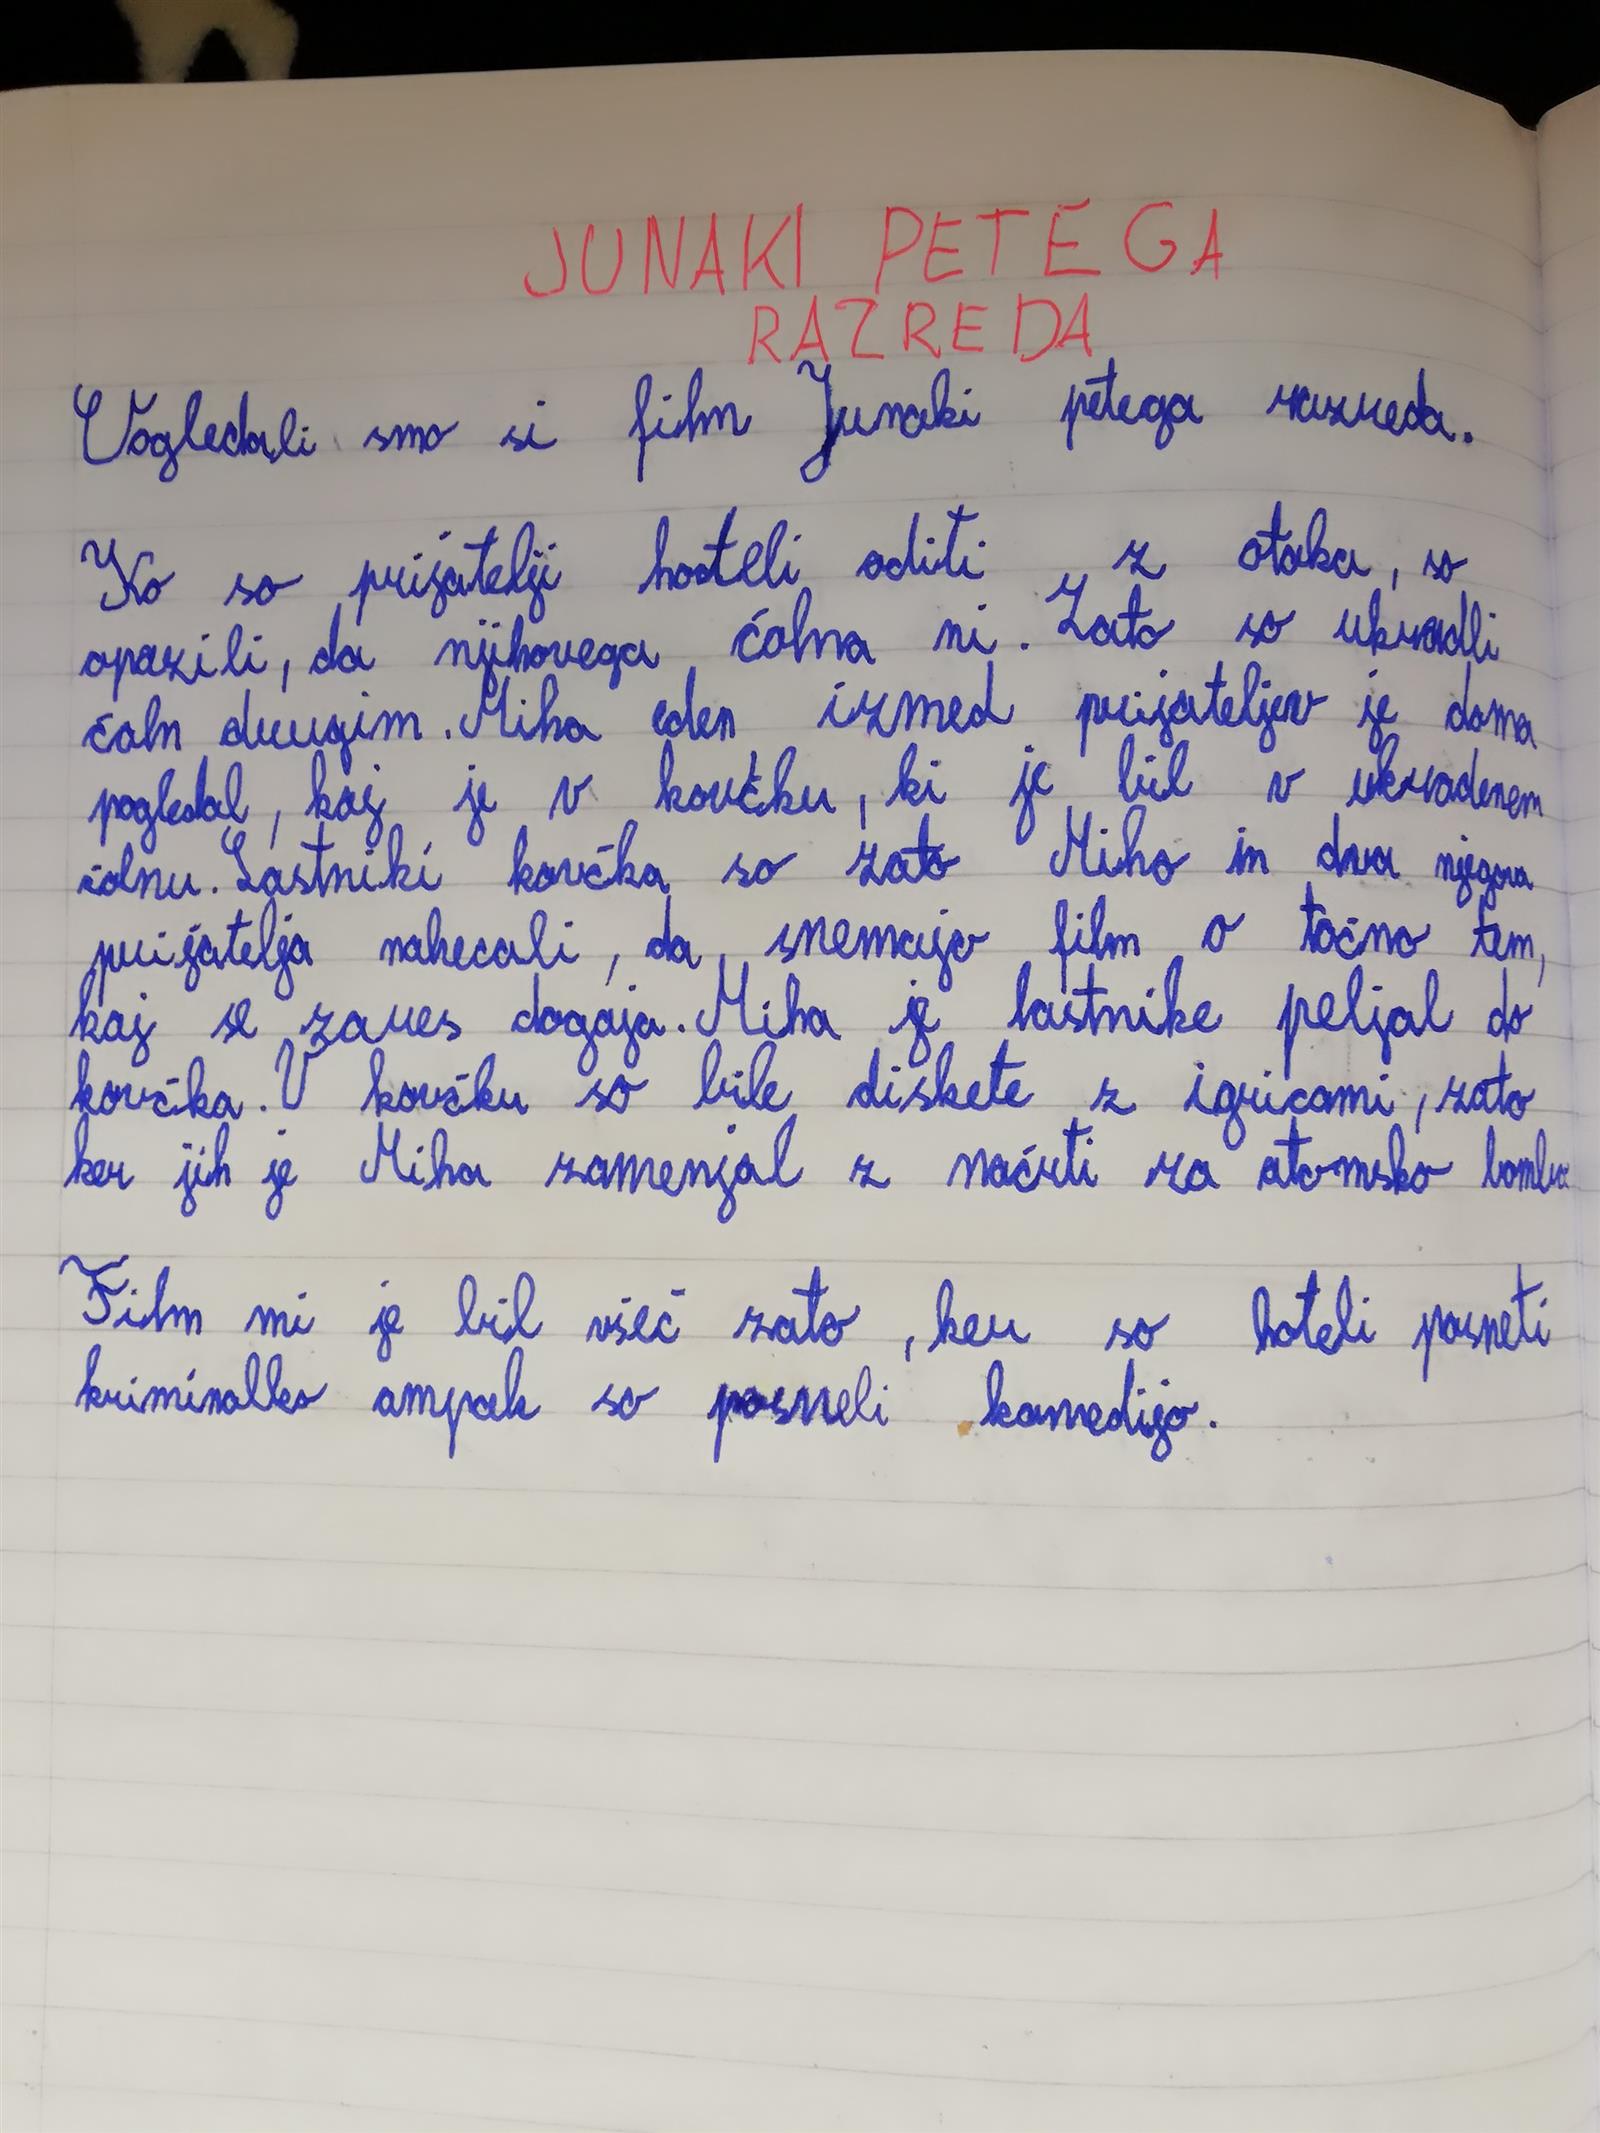 JUNAKI PETEGA
RAZREDA
Vogledali smo si film Junaki petega razreda.
Ko so prijatelji hoteli oditi z otoka, so
opazili, da njihovega čolna ni. Zato so ukradli
čoln drugim. Miha eden izmed prijateljev je doma
pogledal, kaj je v kovčku, ki je bil v ukradenem
čolnu. Lastniki kovčka so zato Miho in dva njegova
prijatelja nahecali, da snemajo film o točno tem,
kaj se zares dogaja. Miha je lastnike peljal do
kovčka. V kovčku so bile diskete z igricami, zato
ker jih je Miha zamenjal z načrti za atomsko bombo
Film mi je bil všeč zato, ker so hoteli posneti
kriminalko ampak so posneli komedijo.